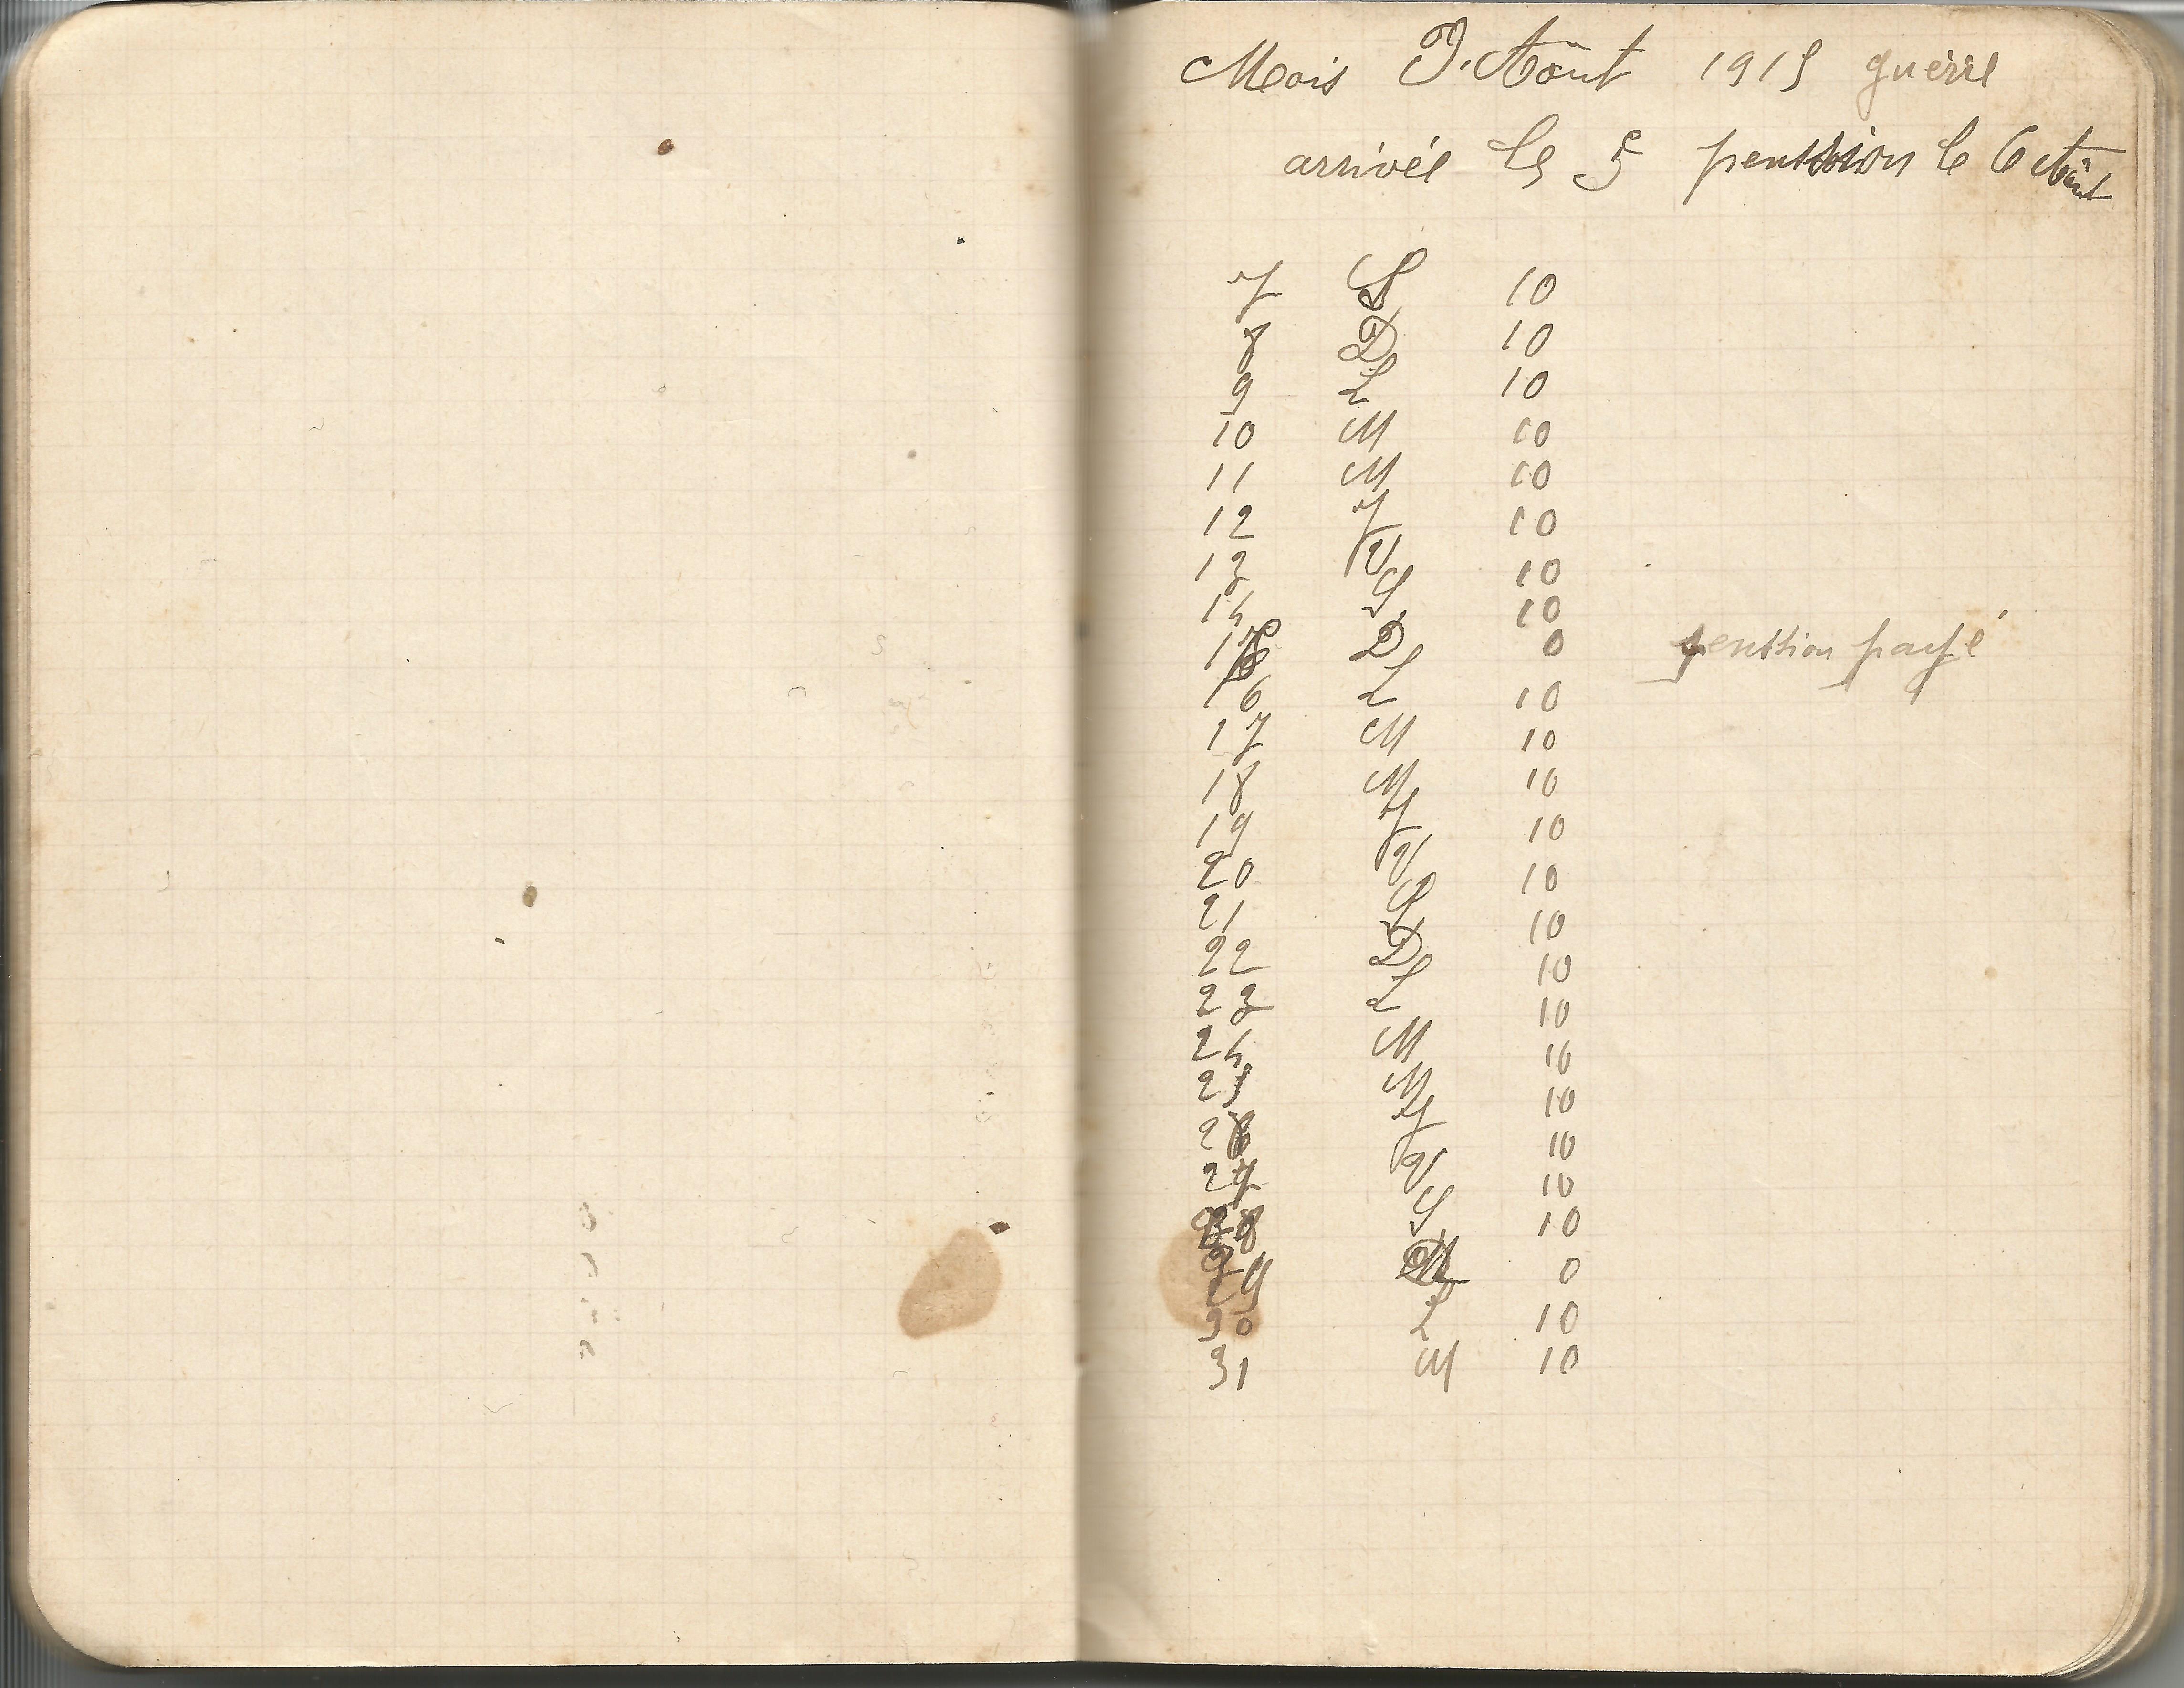 Mois D'Août 1915 guèrre
arrivée le 5 penssion le 6 Août
7 S 10
8 D 10
9 L 10
10 M 10
11 M 10
12 J 10
13 V 10
14 S 10
15 D 0 penssion payé
16 L 10
17 M 10
18 M 10
19 J 10
20 V 10
21 S 10
22 D 10
23 L 10
24 M 10
25 M 10
26 J 10
27 V 10
28 S 10
29 0
30 L 10
31 M 10